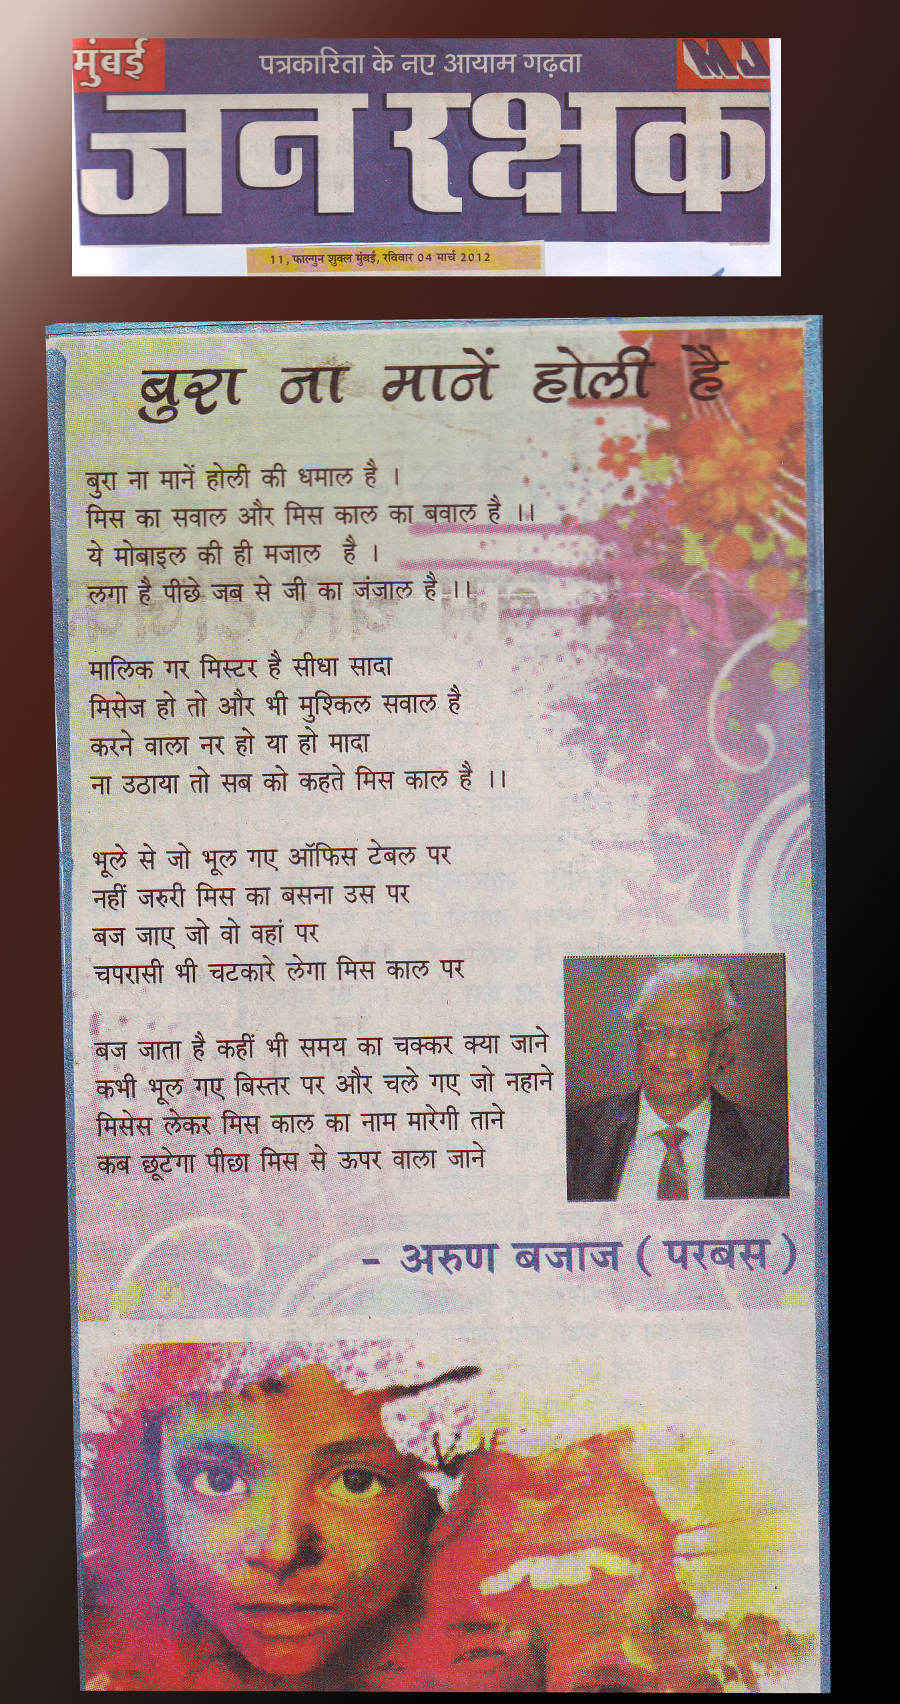 मुंबई
पत्रकारिता के नए आयाम गढ़ता
MJ
जन रक्षक
11, फाल्गुन शुक्ल मुंबई, रविवार 04 मार्च 2012
बुरा ना मानें होली है
बुरा ना मानें होली की धमाल है ।
मिस का सवाल और मिस काल का बवाल है ।।
ये मोबाइल की ही मजाल है ।
लगा है पीछे जब से जी का जंजाल है ।।
मालिक गर मिस्टर है सीधा सादा
मिसेज हो तो और भी मुश्किल सवाल है
करने वाला नर हो या हो मादा
ना उठाया तो सब को कहते मिस काल है ।।
भूले से जो भूल गए ऑफिस टेबल पर
नहीं जरुरी मिस का बसना उस पर
बज जाए जो वो वहां पर
चपरासी भी चटकारे लेगा मिस काल पर
बज जाता है कहीं भी समय का चक्कर क्या जाने
कभी भूल गए बिस्तर पर और चले गए जो नहाने
मिसेस लेकर मिस काल का नाम मारेगी ताने
कब छूटेगा पीछा मिस से ऊपर वाला जाने
- अरुण बजाज ( परबस )